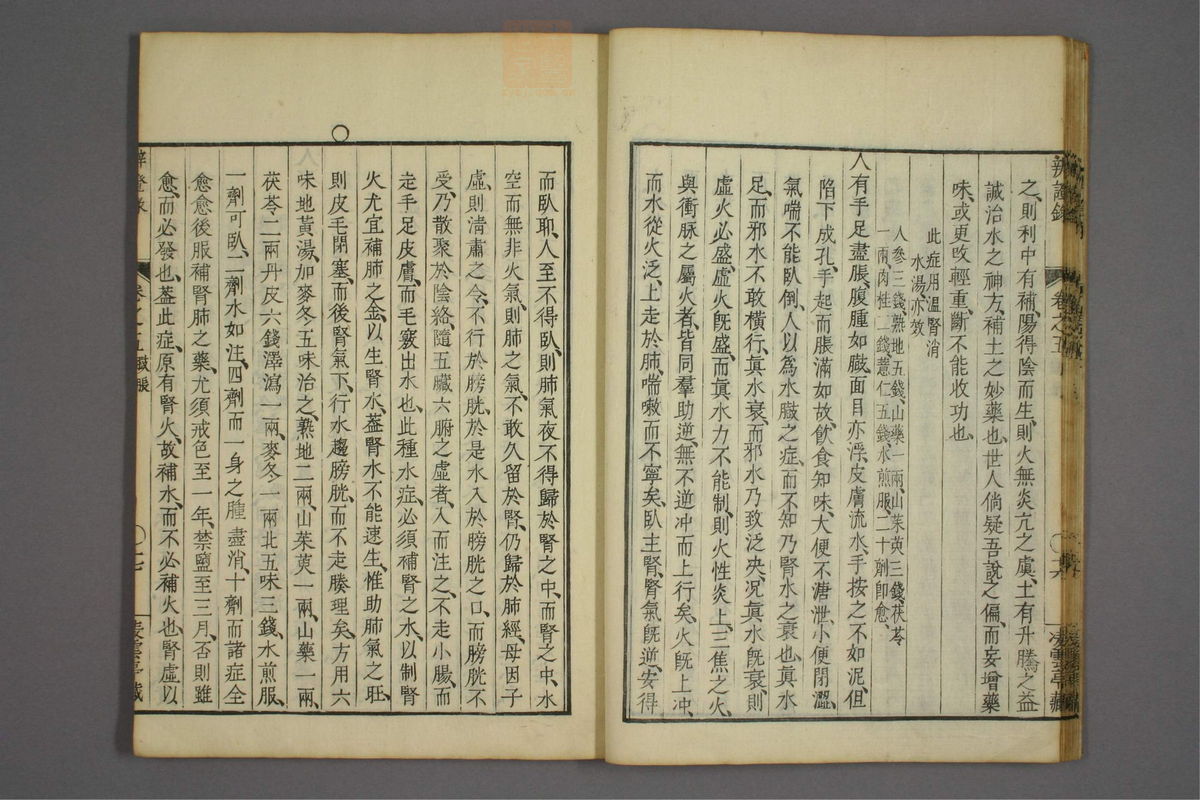 之、則利中有補、陽得陰而生、則火無炎亢之虞、土有升騰之益、
誠治水之神方、補土之妙藥也、世人倘疑吾說之偏、而妄增藥
味、或更改輕重、斷不能收功也、
此症用溫腎消
水湯亦效
人參三錢、熟地五錢、山藥一兩山茱萸三錢、茯苓
一兩肉桂二錢、薏仁五錢、水煎服、二十劑卽愈、
人有手足盡脹、腹腫如臌、面目亦浮、皮膚流水、手按之不如泥、但
陷下成孔、手起而脹滿如故、飮食知味、大便不溏泄、小便閉澀、
氣喘不能臥倒、人以爲水臌之症、而不知乃腎水之衰也、眞水
足、而邪水不敢橫行、眞水衰、而邪水乃致泛決、况眞水旣衰、則
虛火必盛、虛火旣盛、而眞水力不能制、則火性炎上、三焦之火、
與衝脉之屬火者、皆同羣助逆、無不逆冲而上行矣、火旣上冲、
而水從火泛、上走於肺、喘嗽而不寧矣、臥主腎、腎氣旣逆、安得
辨證錄 卷之五 六 凌雲亭藏
而臥耶、人至不得臥、則肺氣夜不得歸於腎之中、而腎之中、水
空而無非火氣、則肺之氣、不敢久留於腎、仍歸於肺經、母因子
虛、則淸肅之令、不行於膀胱、於是水入於膀胱之口、而膀胱不
受、乃散聚於陰絡、隨五臟六腑之虛者、入而注之、不走小腸、而
走手足皮膚、而毛竅出水也、此種水症、必須補腎之水、以制腎
火、尤宜補肺之金、以生腎水、葢腎水不能速生、惟助肺氣之旺、
則皮毛閉塞、而後腎氣下行、水趨膀胱、而不走腠理矣、方用六
味地黃湯、加麥冬五味治之、熟地二兩、山茱萸一兩、山藥一兩、
茯苓二兩丹皮六錢澤瀉一兩、麥冬一兩北五味三錢、水煎服、
一劑可臥、二劑水如注、四劑而一身之腫盡消、十劑而諸症全
愈、愈後服補腎肺之藥、尤須戒色至一年、禁鹽至三月、否則雖
愈、而必發也、葢此症、原有腎火、故補水、而不必補火也、腎虛以
卷之五 臌脹